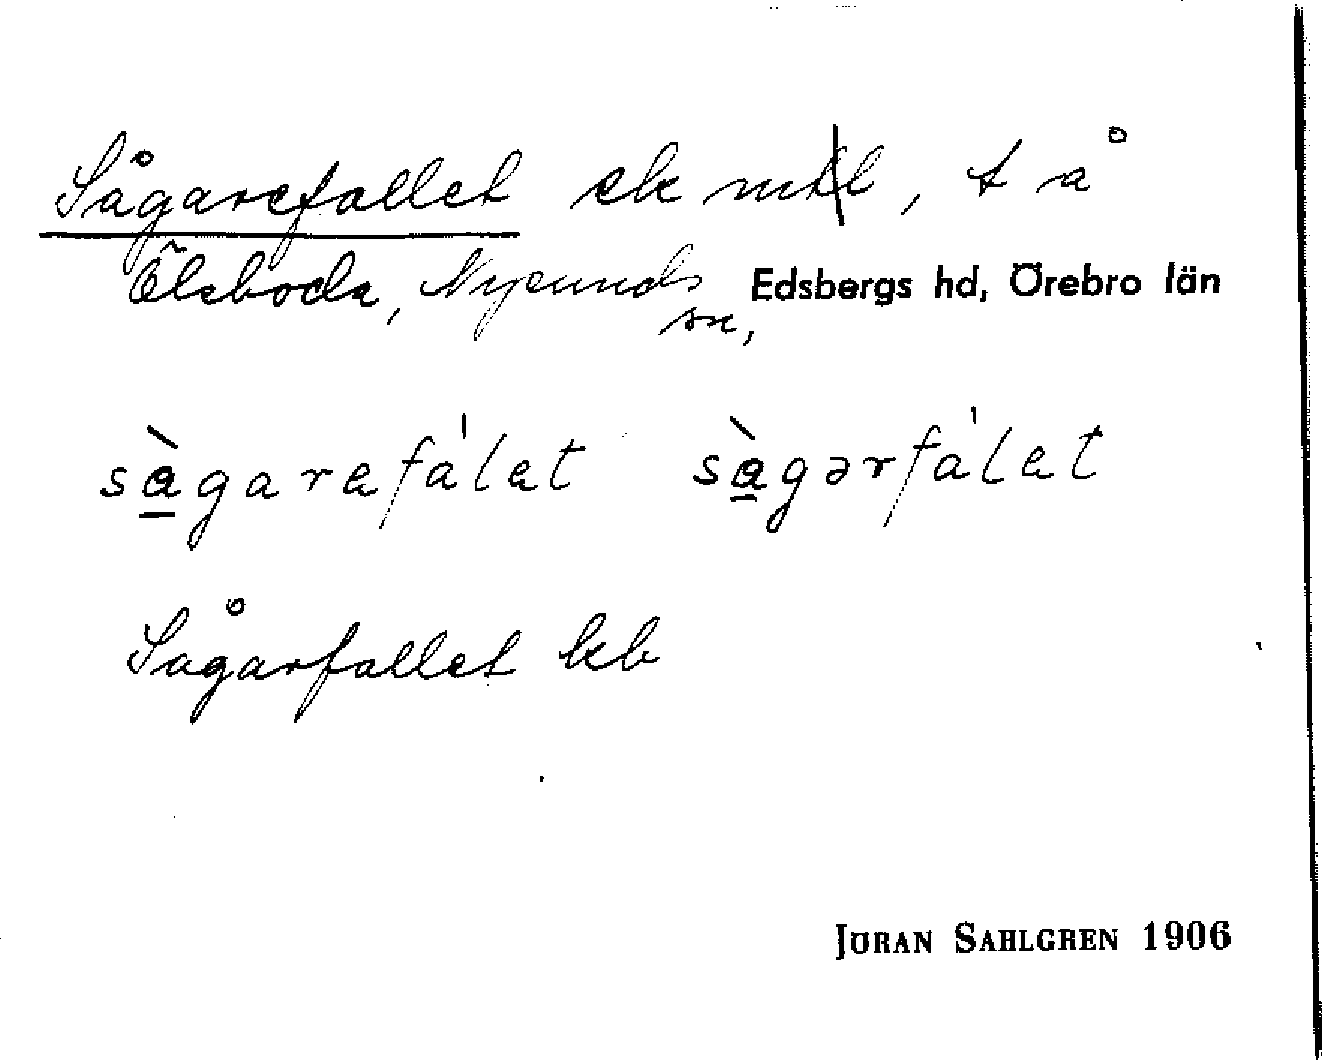 Sågarefallet ek mtl, t å
Ölsboda, Nysunds
sn, Edsbergs hd, Örebro län
sàgarefálet sàgərfálet
Sågarfallet kb
JÖRAN SAHLGREN 1906